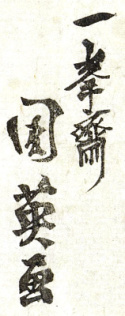 一峯齋
周英画